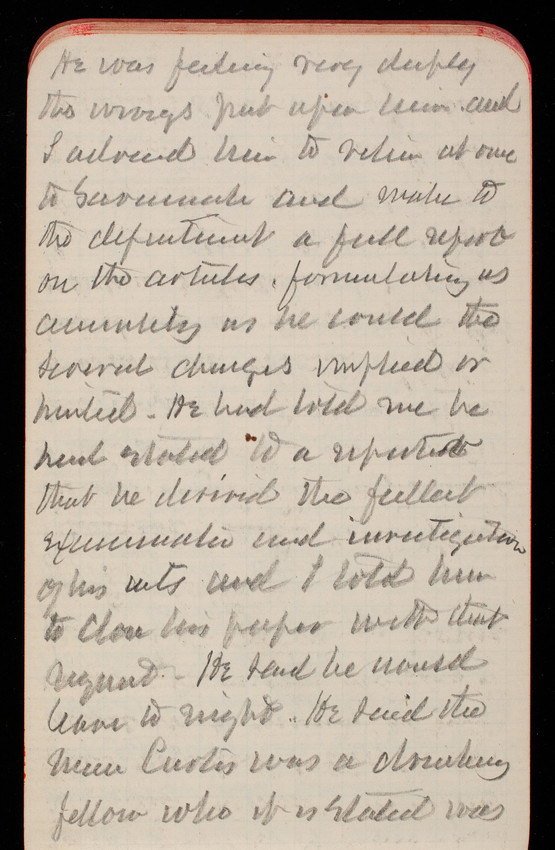 He was feeling very deeply
the wrongs put upon him and
I advised him to return at once
to Savannah and make to
the department a full report
on the articles, formulating as
accurately as he could the
several charges implied or
hinted - He had told me he
had stated to a reporter
that he desired the fullest
examination and investigation
of his acts and I told him
to close his paper with that
request - He said he would
leave to night. He said the
man Curtis was a drinking
fellow who it is stated was